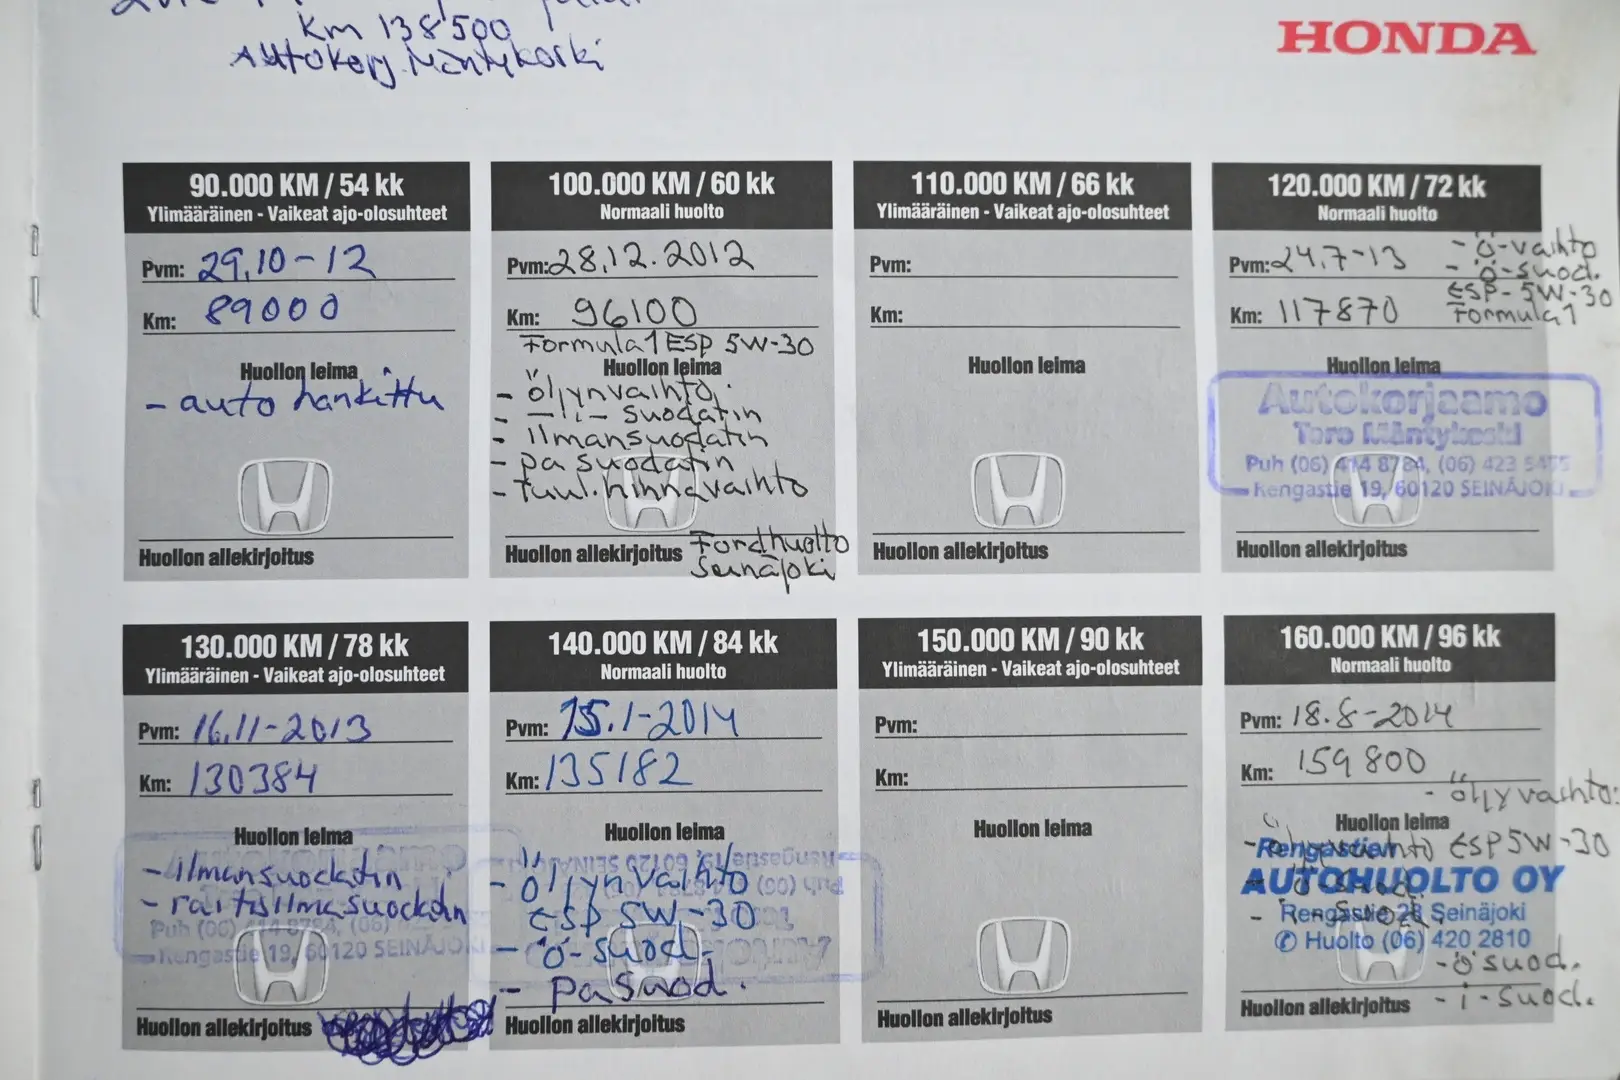 Km 138500
Autokorj. Mäntykoski
HONDA
90.000 KM / 54 kk
Ylimääräinen - Vaikeat ajo-olosuhteet
Pvm: 29,10-12
Km: 89000
Huollon leima
- auto hankittu
Huollon allekirjoitus
100.000 KM / 60 kk
Normaali huolto
Pvm: 28.12.2012
Km: 96100
Formula1 ESP 5W-30
Huollon leima
- öljynvaihto.
- -li- suodatin
- ilmansuodatin
- pa suodatin
- tuul.hihnavaihto
Huollon allekirjoitus
Fordhuolto
Seinäjoki
110.000 KM / 66 kk
Ylimääräinen - Vaikeat ajo-olosuhteet
Pvm:
Km:
Huollon leima
Huollon allekirjoitus
120.000 KM / 72 kk
Normaali huolto
Pvm: 24.7-13
- ö-vaihto
- ö-suod.
ESP- 5W-30
Formula1
Km: 117870
Huollon leima
Autokorjaamo
Toro Mäntykoski
Puh (06) 414 8784, (06) 423 5455
Rengastie 19, 60120 SEINÄJOKI
Huollon allekirjoitus
130.000 KM / 78 kk
Ylimääräinen - Vaikeat ajo-olosuhteet
Pvm: 16.11-2013
Km: 130384
Huollon leima
- ilmansuodatin
- raitisilmasuodatin
Puh (06) 414 8784, (06)
Rengastie 19, 60120 SEINÄJOKI
Huollon allekirjoitus
140.000 KM / 84 kk
Normaali huolto
Pvm: 15.1-2014
Km: 135182
Huollon leima
Rengastie 19, 60120 SEINÄJOKI
- öljynvaihto
ESP 5W-30
- ö-suod.
- pasuod.
Huollon allekirjoitus
150.000 KM / 90 kk
Ylimääräinen - Vaikeat ajo-olosuhteet
Pvm:
Km:
Huollon leima
Huollon allekirjoitus
160.000 KM / 96 kk
Normaali huolto
Pvm: 18.8-2014
Km: 159800
- öljyvaihto:
Huollon leima
ESP5W-30
Rengastien
AUTOHUOLTO OY
Rengastie 28 Seinäjoki
✆ Huolto (06) 420 2810
- ö suod.
- i-suod.
Huollon allekirjoitus